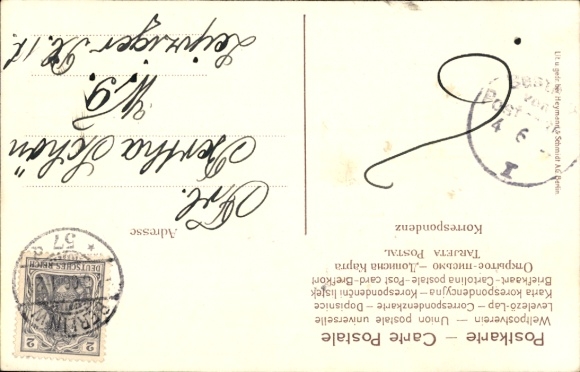 Postkarte – Carte Postale
Weltpostverein – Union postale universelle
Levelező-Lap – Correspondenzkarte – Dopisnice
Karta korespondencyjna – Korespondenční lístek
Briefkaart – Cartolina postale – Post card – Brefkort
Открытое письмо – Дописна Карта
TARJETA POSTAL
Korrespondenz
Adresse
2
DEUTSCHES REICH
BERLIN
57
Frl.
Bertha Schön
W. 9.
Leipziger Pl. 15
Bestellt
vom
Postamte
4 6
I
Lit. u. gedr. bei Heymann & Schmidt AG Berlin.